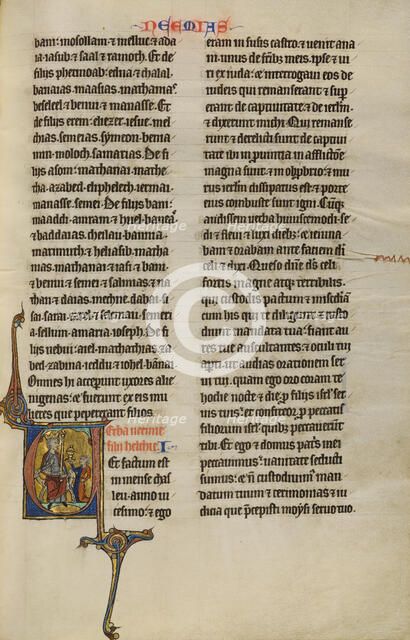 NEEMIAS
bani: mosollam ⁊ melluc ⁊ ada
ia iasub ⁊ saal ⁊ ramoth. Et de
filijs phetmoab: edna ⁊ chalal
banaias maasias mathanias
beseleel ⁊ bennui ⁊ manasse. Et
de filijs erem: eliezer iesue mel
chias semeias symeon benia
min moloch samarias. De fi
lijs asom: mathanai matha
tha zabed eliphelech iermai
manasse semei. De filijs bani:
maaddi amram ⁊ huel baneas
⁊ baddaias cheilau bannia
marimuth ⁊ heliasib matha
nias mathanai ⁊ iasi ⁊ bani
⁊ bennui ⁊ semei ⁊ salmias ⁊ na
than ⁊ daias mechne dabai si
sai sarai ezrel ⁊ selemau semeri
a sellum amaria ioseph. De fi
lijs nebui: aiel mathathias za
bed zabina ieddu ⁊ iohel banai.
Omnes hij acceperunt uxores alie
nigenas ⁊ fuerunt ex eis mu
lieres que pepererant filios.
Verba neemie
filii helchie. I
Et factum est
in mense chas
leu anno ui
cesimo: ⁊ ego
eram in susis castro: ⁊ uenit ana
ni unus de fratribus meis ipse ⁊ ui
ri ex iuda: ⁊ interrogaui eos de
iudeis qui remanserant ⁊ sup
erant de captiuitate ⁊ de ierlm.
⁊ dixerunt michi. Qui remanse
runt ⁊ derelicti sunt de captiui
tate ibi in puintia in afflictione
magna sunt ⁊ in obprobrio: ⁊ mu
rus ierlm dissipatus est: ⁊ porte
eius combuste sunt igni. Cumq
audissem uerba huiuscemodi: se
di ⁊ fleui ⁊ luxi diebus: ⁊ ieiuna
bam ⁊ orabam ante faciem dei
celi ⁊ dixi. Queso domine deus celi
fortis magne atq terribilis.
qui custodis pactum ⁊ misericordiam
cum hijs qui te diligunt ⁊ custo
diunt mandata tua: fiant au
res tue auscultantes ⁊ oculi tui
aperti ut audias orationem ser
ui tui quam ego oro coram te
hodie nocte ⁊ die p filijs isrl ser
uis tuis ⁊ confiteor p peccatis
filiorum isrl quibus peccauerunt
tibi. Et ego ⁊ domus patris mei
peccauimus: uanitate seducti
sumus: ⁊ non custodiuimus man
datum tuum ⁊ cerimonias ⁊ iu
dicia que precepisti moysi seruo tuo.
Heritage
Heritage
Heritage
Heritage
Heritage
Heritage